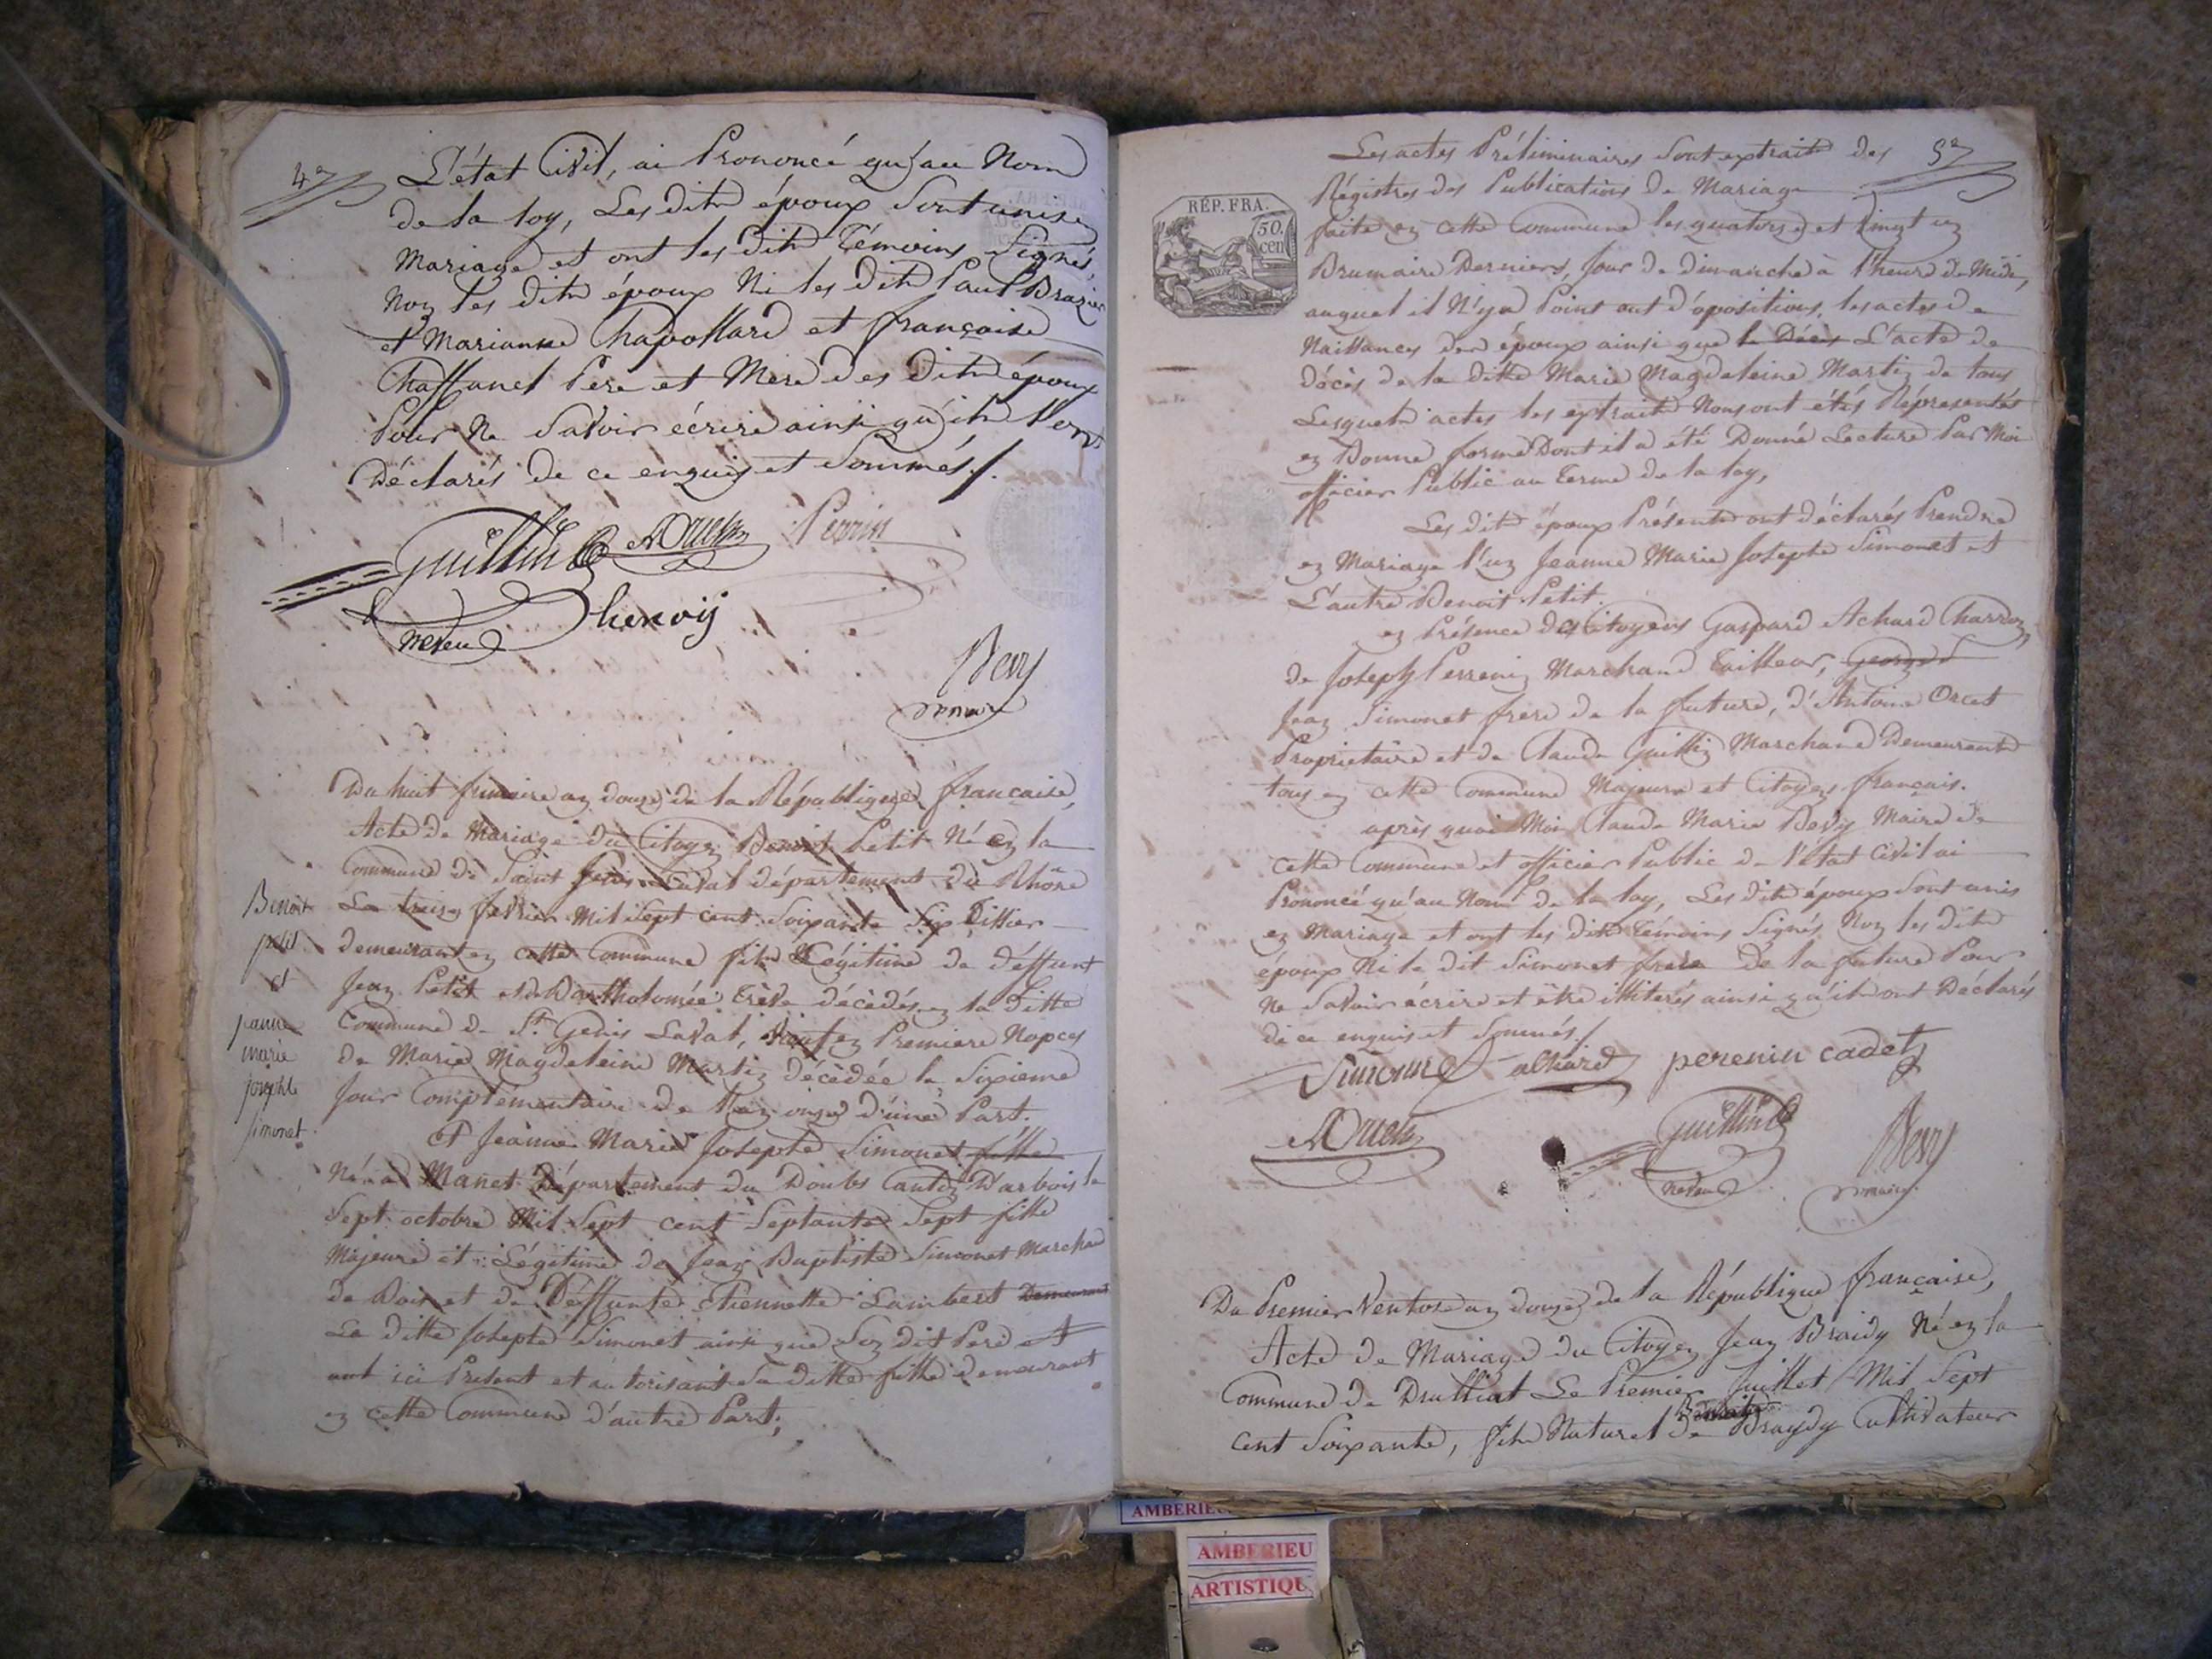 4e
L'état Civil, ai Prononcé qu'au Nom
de la loy, Les dits époux Sont unis en
Mariage et ont les dits Témoins Signés,
Non les dits époux Ni les dits Paul Brazier
et Marianne Chapollard et françoise
Chaffanel Pere et Mere des dits époux
Pour Ne Savoir écrire ainsi qu'ils l'ont
Déclarés de ce enquis et Sommés /.
Guillin C AOrcet Perrin
neveu Chenoij
Bevy
maire
Du huit frimaire an douze de la République française,
Acte de Mariage du Citoyen Benoit Petit Né en la
Commune de Saint Genis Laval département du Rhône
Le treize fevrier Mil Sept cent Soixante Six
demeurant en cette Commune fils Légitime de déffunt
Jean Petit et de Bartholomée décédés en la ditte
Commune de St Genis Laval, en Premiere Nopces
de Marie Magdeleine Martin décédée le Sixieme
Jour Complémentaire de l'an onze d'une Part.
Benoit
petit
et
jeanne
marie
josephte
simonet
Et Jeanne Marie Josephte Simonet fille
Née à Manet Département du Doubs Canton D'arbois le
Sept octobre Mil Sept cent Septante Sept fille
Majeure et Légitime de Jean Baptiste Simonet Marchand
de Bois et de Déffunte Etiennette Lambert Demeurant
La ditte Josephte Simonet ainsi que Son dit Pere et
ont ici Présent et autorisant Sa ditte fille demeurant
en cette Commune d'autre Part;
5e
RÉP. FRA.
50.
cen
Les actes Préliminaires Sont extraits des
Régistres des Publications de Mariage
faite en cette Commune les quatorze et vingt un
Brumaire Derniers, Jour de dimanche à l'heure de Midi,
auquel il N'y a Point eut d'opositions, les actes de
Naissances des époux ainsi que le Décès L'acte de
décès de la ditte Marie Magdeleine Martin de tous
Lesquels actes les extraits Nous ont étés Représentés
en Bonne forme Dont il a été Donné Lecture Par Moi
officier Public au Terme de la loy,
Les dits époux Présents ont déclarés Prendre
en Mariage l'un Jeanne Marie Josephte Simonet et
L'autre Benoit Petit.
en Présence des Citoyens Gaspard Achard Charron,
de Joseph Perrenin Marchand Tailleur, George
Jean Simonet frere de la future, d'Antoine Orcet
Proprietaire et de Claude Guillin Marchand Demeurants
tous en cette Commune Majeurs et Citoyens français.
après quoi Moi Claude Marie Bevy Maire de
cette Commune et officier Public de l'état Civil ai
Prononcé qu'au Nom de la loy, Les dits époux Sont unis
en Mariage et ont les dits Témoins Signés Non les dits
époux Ni le dit Simonet frere de la future Pour
Ne Savoir écrire et être illiterés ainsi qu'ils ont Déclarés
de ce enquis et Sommés /.
Simonet achard perenin cadet
AOrcet Guillin C Bevy
neveu maire
Du Premier Ventose an douze de la République française,
Acte de Mariage du Citoyen Jean Braidy Né en la
Commune de Druilliat Le Premier Juillet Mil Sept
cent Soixante, fils Naturel de Braydy Cultivateur
AMBERIEU
AMBERIEU
ARTISTIQU